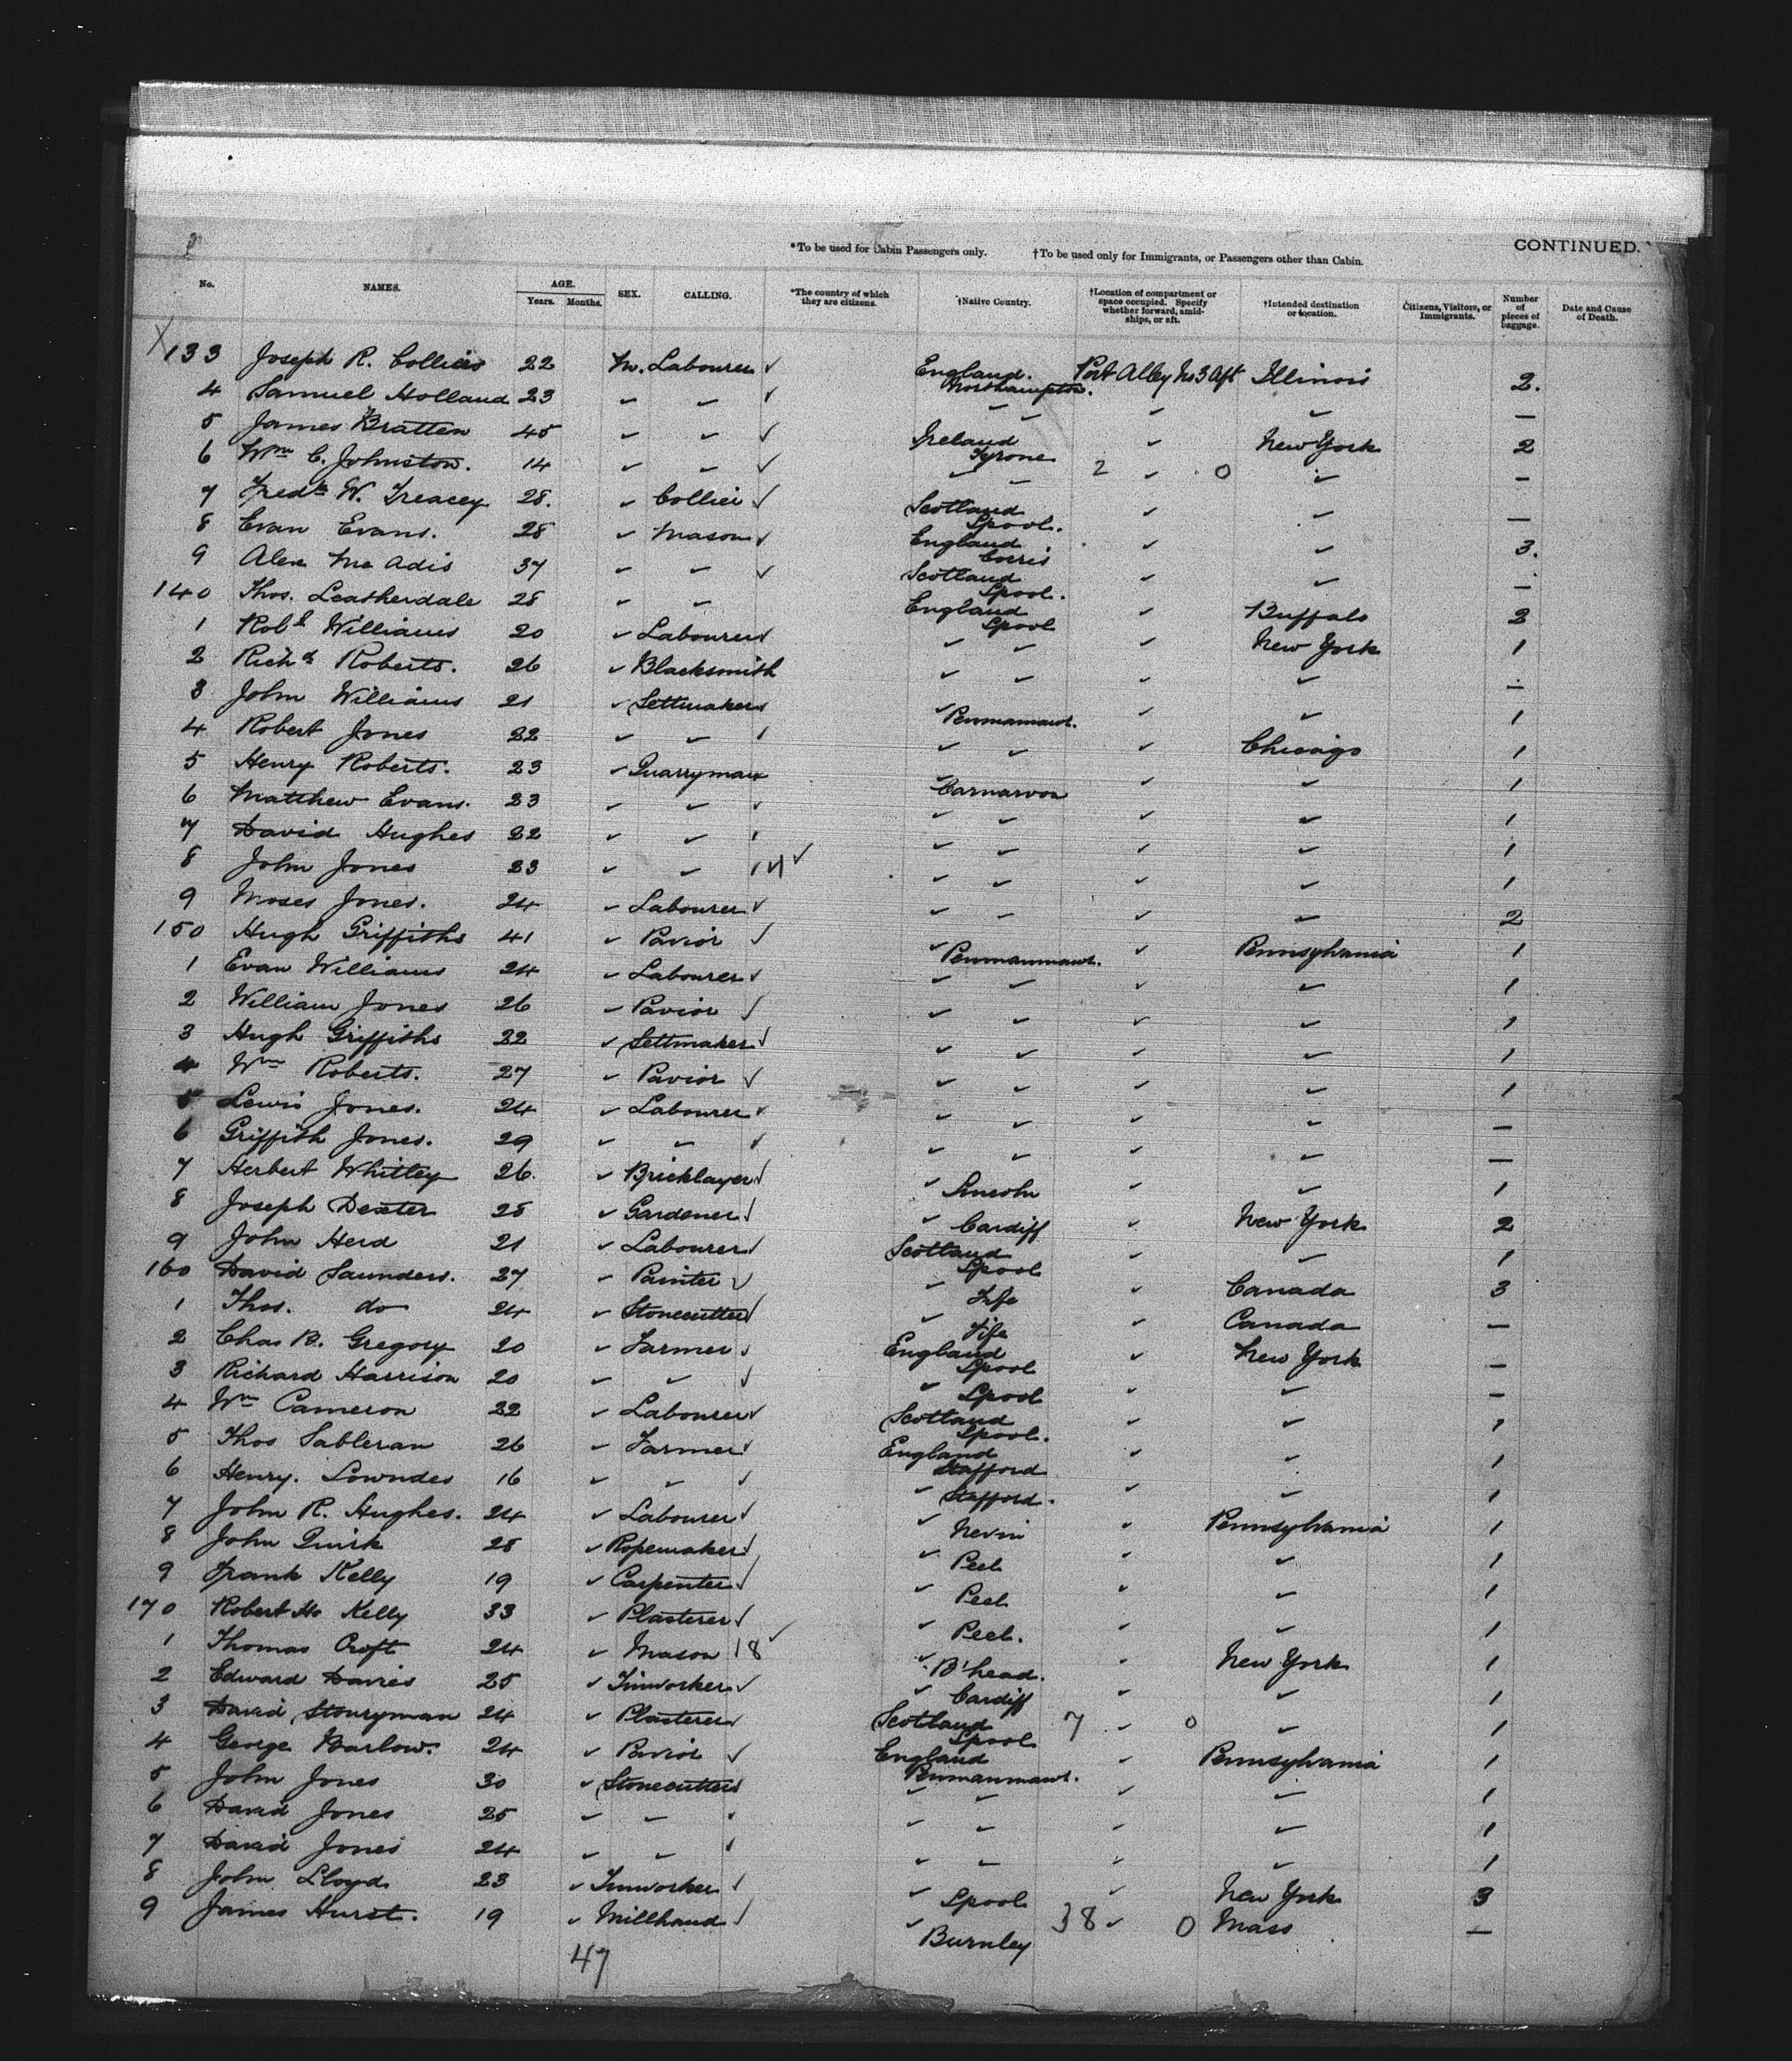 CONTINUED.
*To be used for Cabin Passengers only. †To be used only for Immigrants, or Passengers other than Cabin.
No. NAMES. AGE. Years. Months. SEX. CALLING. *The country of which they are citizens. †Native Country. †Location of compartment or space occupied. Specify whether forward, amidships, or aft. †Intended destination or location. Citizens, Visitors, or Immigrants. Number of pieces of baggage. Date and Cause of Death.
X133 Joseph R. Collins 22 M. Labourer ✓ England. Northampton. Port Alley No 3 Aft Illinois 2.
4 Samuel Holland 23 ✓ ✓ ✓ ✓ ✓ ✓ ✓ —
5 James Bratten 45 ✓ ✓ ✓ Ireland Tyrone ✓ New York 2
6 Wm C. Johnston. 14 ✓ ✓ ✓ ✓ ✓ 2 ✓ 0 ✓ —
7 Fredk W. Treacey 28. ✓ Collier ✓ Scotland Lpool. ✓ ✓ —
8 Evan Evans. 28 ✓ Mason ✓ England Corris ✓ ✓ 3.
9 Alex McAdis 37 ✓ ✓ ✓ Scotland Lpool. ✓ ✓ —
140 Thos. Leatherdale 28 ✓ ✓ England Lpool ✓ Buffalo 2
1 Robt Williams 20 ✓ Labourer ✓ ✓ ✓ ✓ New York 1
2 Richd Roberts. 26 ✓ Blacksmith ✓ ✓ ✓ ✓ —
3 John Williams 21 ✓ Settmaker ✓ Penmanmawr. ✓ ✓ 1
4 Robert Jones 22 ✓ ✓ ✓ ✓ ✓ ✓ Chicago 1
5 Henry Roberts. 23 ✓ Quarryman ✓ Carnarvon ✓ ✓ 1
6 Matthew Evans. 23 ✓ ✓ ✓ ✓ ✓ ✓ ✓ 1
7 David Hughes 22 ✓ ✓ ✓ ✓ ✓ ✓ ✓ 1
8 John Jones 23 ✓ ✓ 14 ✓ ✓ ✓ ✓ ✓ 1
9 Moses Jones. 24 ✓ Labourer ✓ ✓ ✓ ✓ ✓ 2
150 Hugh Griffiths 41 ✓ Pavior ✓ ✓ Penmanmawr. ✓ Pennsylvania 1
1 Evan Williams 24 ✓ Labourer ✓ ✓ ✓ ✓ ✓ 1
2 William Jones 26 ✓ Pavior ✓ ✓ ✓ ✓ ✓ 1
3 Hugh Griffiths 22 ✓ Settmaker ✓ ✓ ✓ ✓ ✓ 1
4 Wm Roberts. 27 ✓ Pavior ✓ ✓ ✓ ✓ ✓ 1
5 Lewis Jones. 24 ✓ Labourer ✓ ✓ ✓ ✓ ✓ —
6 Griffith Jones. 29 ✓ ✓ ✓ ✓ ✓ ✓ ✓ —
7 Herbert Whitley 26. ✓ Bricklayer ✓ ✓ Lincoln ✓ ✓ 1
8 Joseph Dexter 28 ✓ Gardener ✓ ✓ Cardiff ✓ New York 2
9 John Herd 21 ✓ Labourer ✓ Scotland Lpool ✓ ✓ 1
160 David Saunders. 27 ✓ Painter ✓ ✓ Fife ✓ Canada 3
1 Thos. do 24 ✓ Stonecutter ✓ ✓ Fife ✓ Canada —
2 Chas B. Gregory 20 ✓ Farmer ✓ England Lpool ✓ New York —
3 Richard Harrison 20 ✓ ✓ ✓ ✓ Lpool ✓ ✓ —
4 Wm Cameron 22 ✓ Labourer ✓ Scotland Lpool. ✓ ✓ 1
5 Thos Tableran 26 ✓ Farmer ✓ England Stafford ✓ ✓ 1
6 Henry. Lowndes 16 ✓ ✓ ✓ ✓ Stafford. ✓ ✓ 1
7 John R. Hughes. 24 ✓ Labourer ✓ ✓ Nevin ✓ Pennsylvania 1
8 John Quirk 28 ✓ Ropemaker ✓ ✓ Peel ✓ ✓ 1
9 Frank Kelly 19 ✓ Carpenter ✓ ✓ Peel ✓ ✓ 1
170 Robert H. Kelly 33 ✓ Plasterer ✓ ✓ Peel. ✓ ✓ 1
1 Thomas Croft 24 ✓ Mason 18 ✓ ✓ B'head. ✓ New York 1
2 Edward Davies 25 ✓ Tinworker ✓ ✓ Cardiff ✓ ✓ 1
3 David Stouryman 24 ✓ Plasterer ✓ Scotland Lpool 7 ✓ 0 ✓ 1
4 George Barlow. 24 ✓ Pavior ✓ England Penmanmawr. ✓ Pennsylvania 1
5 John Jones 30 ✓ Stonecutter ✓ ✓ ✓ ✓ ✓ 1
6 David Jones 25 ✓ ✓ ✓ ✓ ✓ ✓ ✓ 1
7 David Jones 24 ✓ ✓ ✓ ✓ ✓ ✓ ✓ 1
8 John Lloyd 23 ✓ Tinworker ✓ ✓ Lpool ✓ New York 3
9 James Hurst. 19 ✓ Millhand ✓ ✓ Burnley 38 ✓ 0 Mass —
47